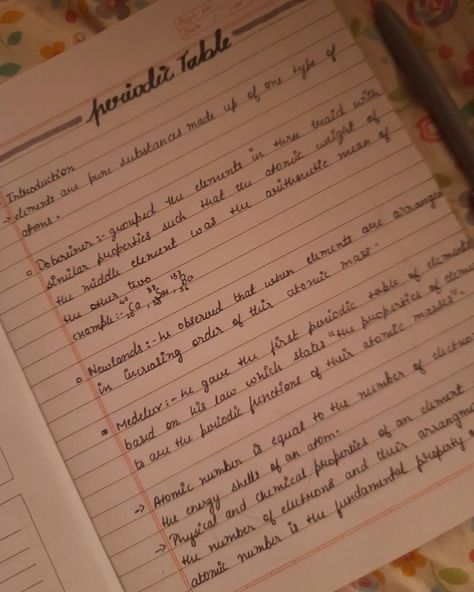 Page No.
Date
periodic Table
Introduction
→ elements are pure substances made up of one type of
atoms.
Doberiner:- grouped the elements in three traid with
similar properties such that the atomic weight of
the middle element was the arithmetic mean of
the other two.
example:- ⁴⁰₂₀Ca,
Newlands:- he observed that when elements are arranged
in increasing order of their atomic mass.
Medeleev:- he gave the first periodic table of element
based on his law which states "the properties of elem
to are the periodic functions of their atomic masses".
→ Atomic number is equal to the number of electro
the energy shells of an atom.
→ Physical and chemical properties of an element
the number of electrons and their arrangm
atomic number is the fundamental propaty